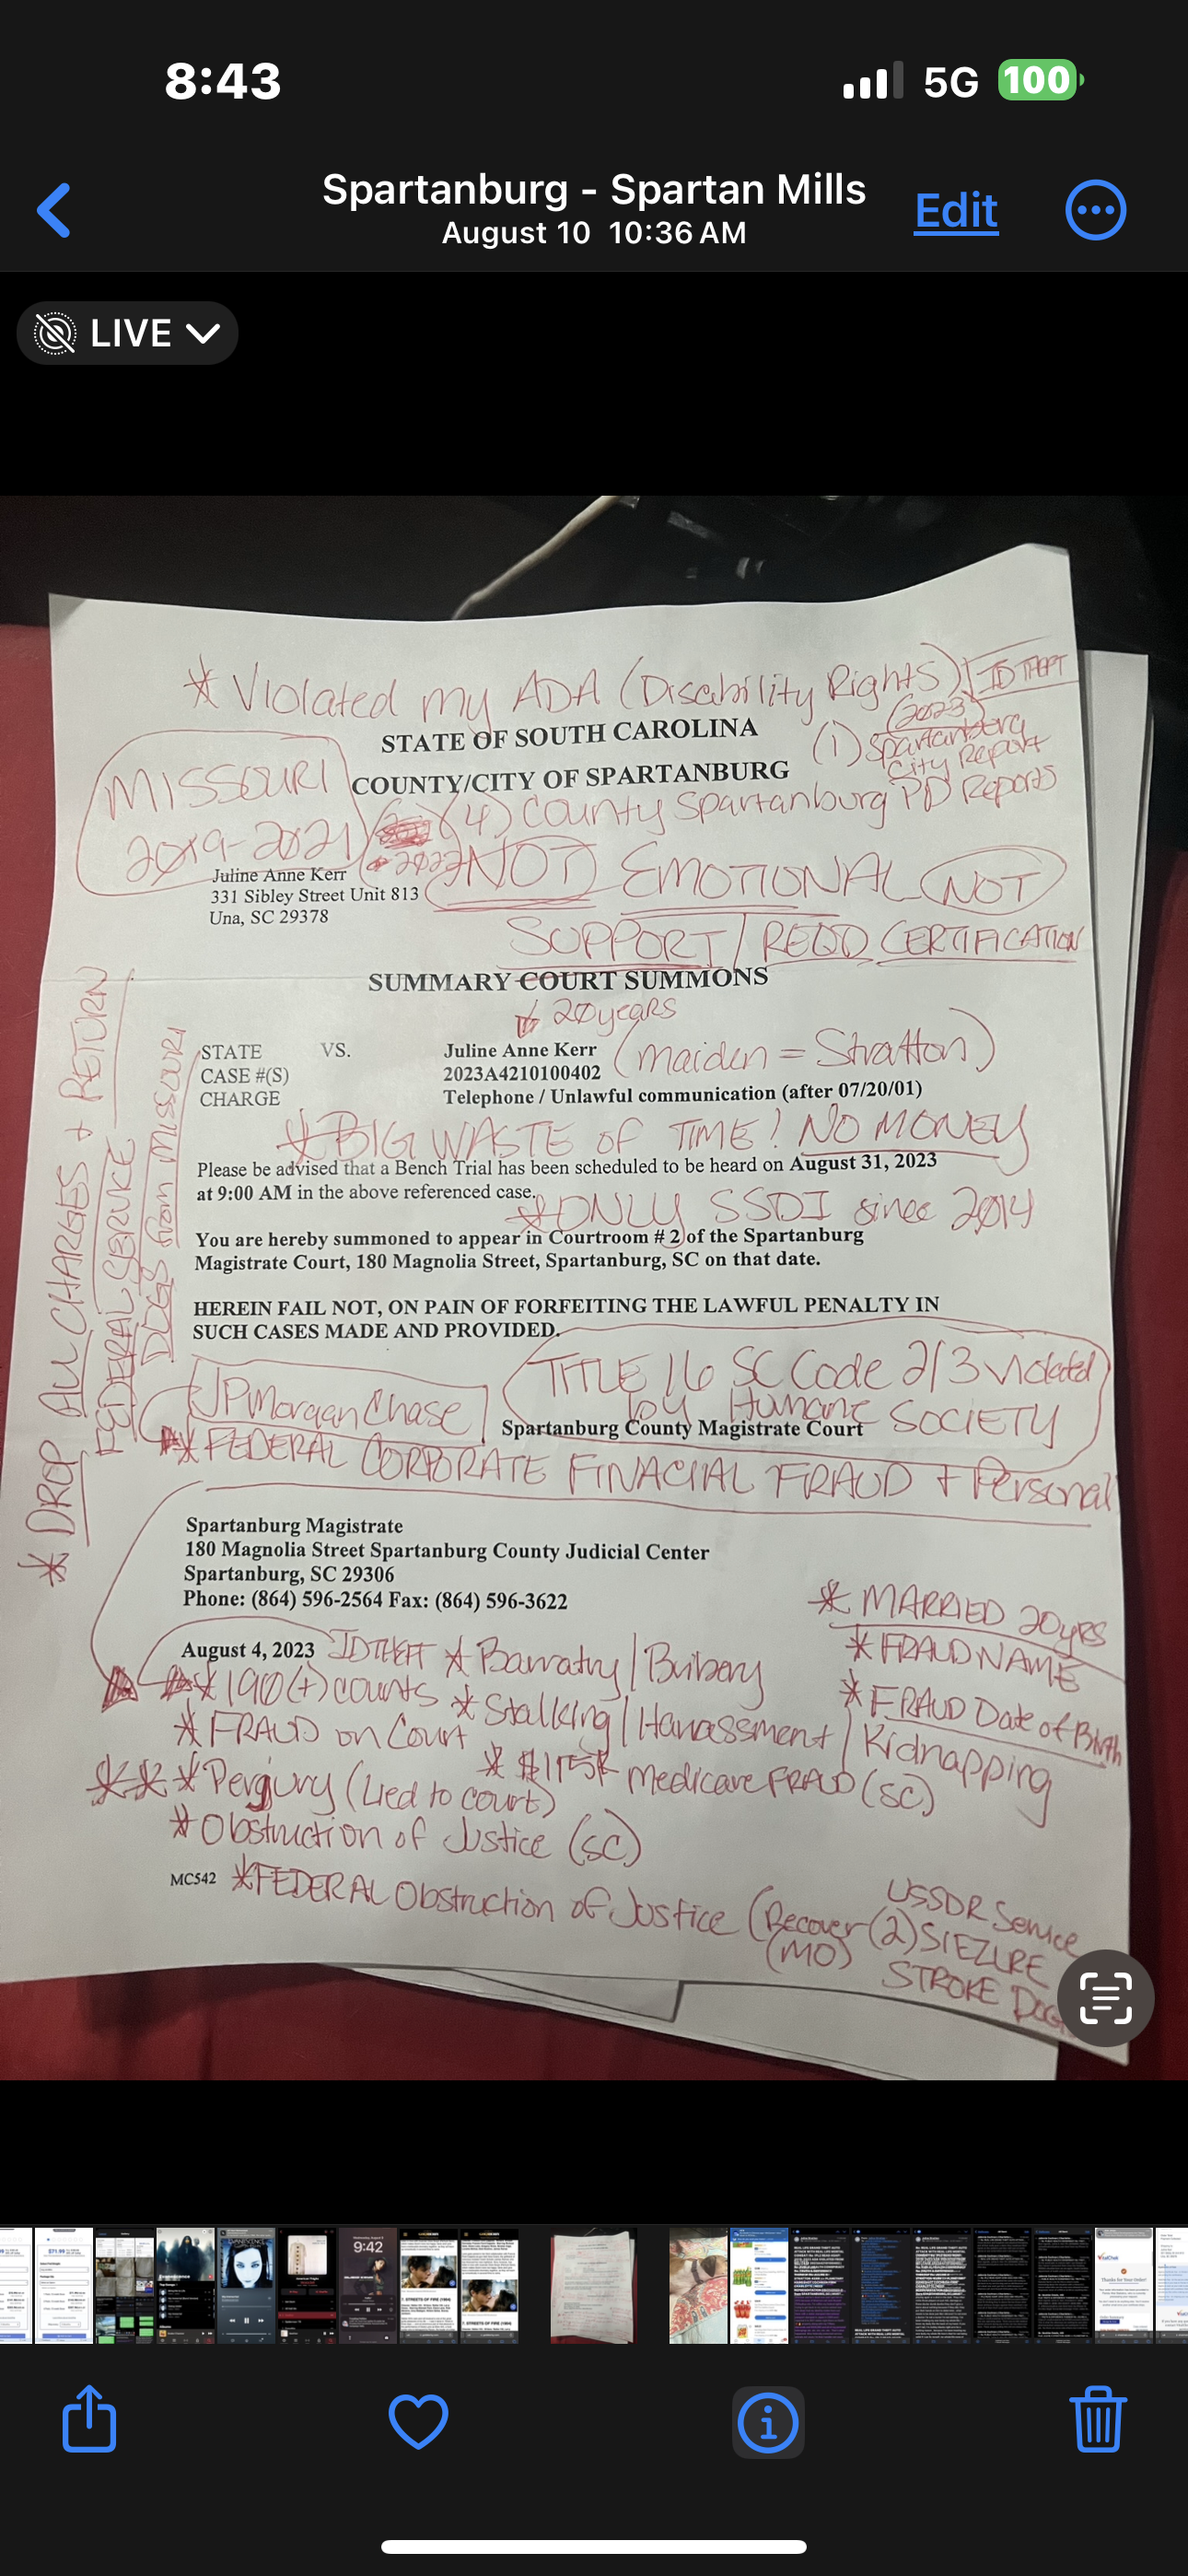 8:43
5G 100
Spartanburg - Spartan Mills
August 10 10:36 AM
Edit
LIVE
* Violated my ADA (Disability Rights) ID THEFT
STATE OF SOUTH CAROLINA
(2023)
(1) Spartanburg
City Report
COUNTY/CITY OF SPARTANBURG
MISSOURI
2019-2021
(4) County Spartanburg PD Reports
2022
NOT EMOTIONAL NOT
Juline Anne Kerr
331 Sibley Street Unit 813
Una, SC 29378
SUPPORT / REQD CERTIFICATION
SUMMARY COURT SUMMONS
20years
STATE VS. Juline Anne Kerr (maiden = Stratton)
CASE #(S) 2023A4210100402
CHARGE Telephone / Unlawful communication (after 07/20/01)
*BIG WASTE OF TIME! NO MONEY
Please be advised that a Bench Trial has been scheduled to be heard on August 31, 2023
at 9:00 AM in the above referenced case.
*ONLY SSDI since 2014
You are hereby summoned to appear in Courtroom # 2 of the Spartanburg
Magistrate Court, 180 Magnolia Street, Spartanburg, SC on that date.
HEREIN FAIL NOT, ON PAIN OF FORFEITING THE LAWFUL PENALTY IN
SUCH CASES MADE AND PROVIDED.
* DROP ALL CHARGES + RETURN
FEDERAL SERVICE
DOGS from MISSOURI
JPMorganChase
TITLE 16 SC Code 2/3 violated
by Humane SOCIETY
Spartanburg County Magistrate Court
** FEDERAL CORPORATE FINACIAL FRAUD + Personal
Spartanburg Magistrate
180 Magnolia Street Spartanburg County Judicial Center
Spartanburg, SC 29306
Phone: (864) 596-2564 Fax: (864) 596-3622
* MARRIED 20yrs
* FRAUD NAME
* FRAUD Date of Birth
August 4, 2023 ID THEFT * Barratry / Bribery
* 190(+) counts * Stalking / Harrassment / Kidnapping
* FRAUD on Court * $1175k Medicare FRAUD (SC)
*** Pergury (Lied to court)
* Obstruction of Justice (SC)
MC542 *FEDERAL Obstruction of Justice (Recover (2) USSDR Service
(MO) SIEZURE
STROKE
9:42